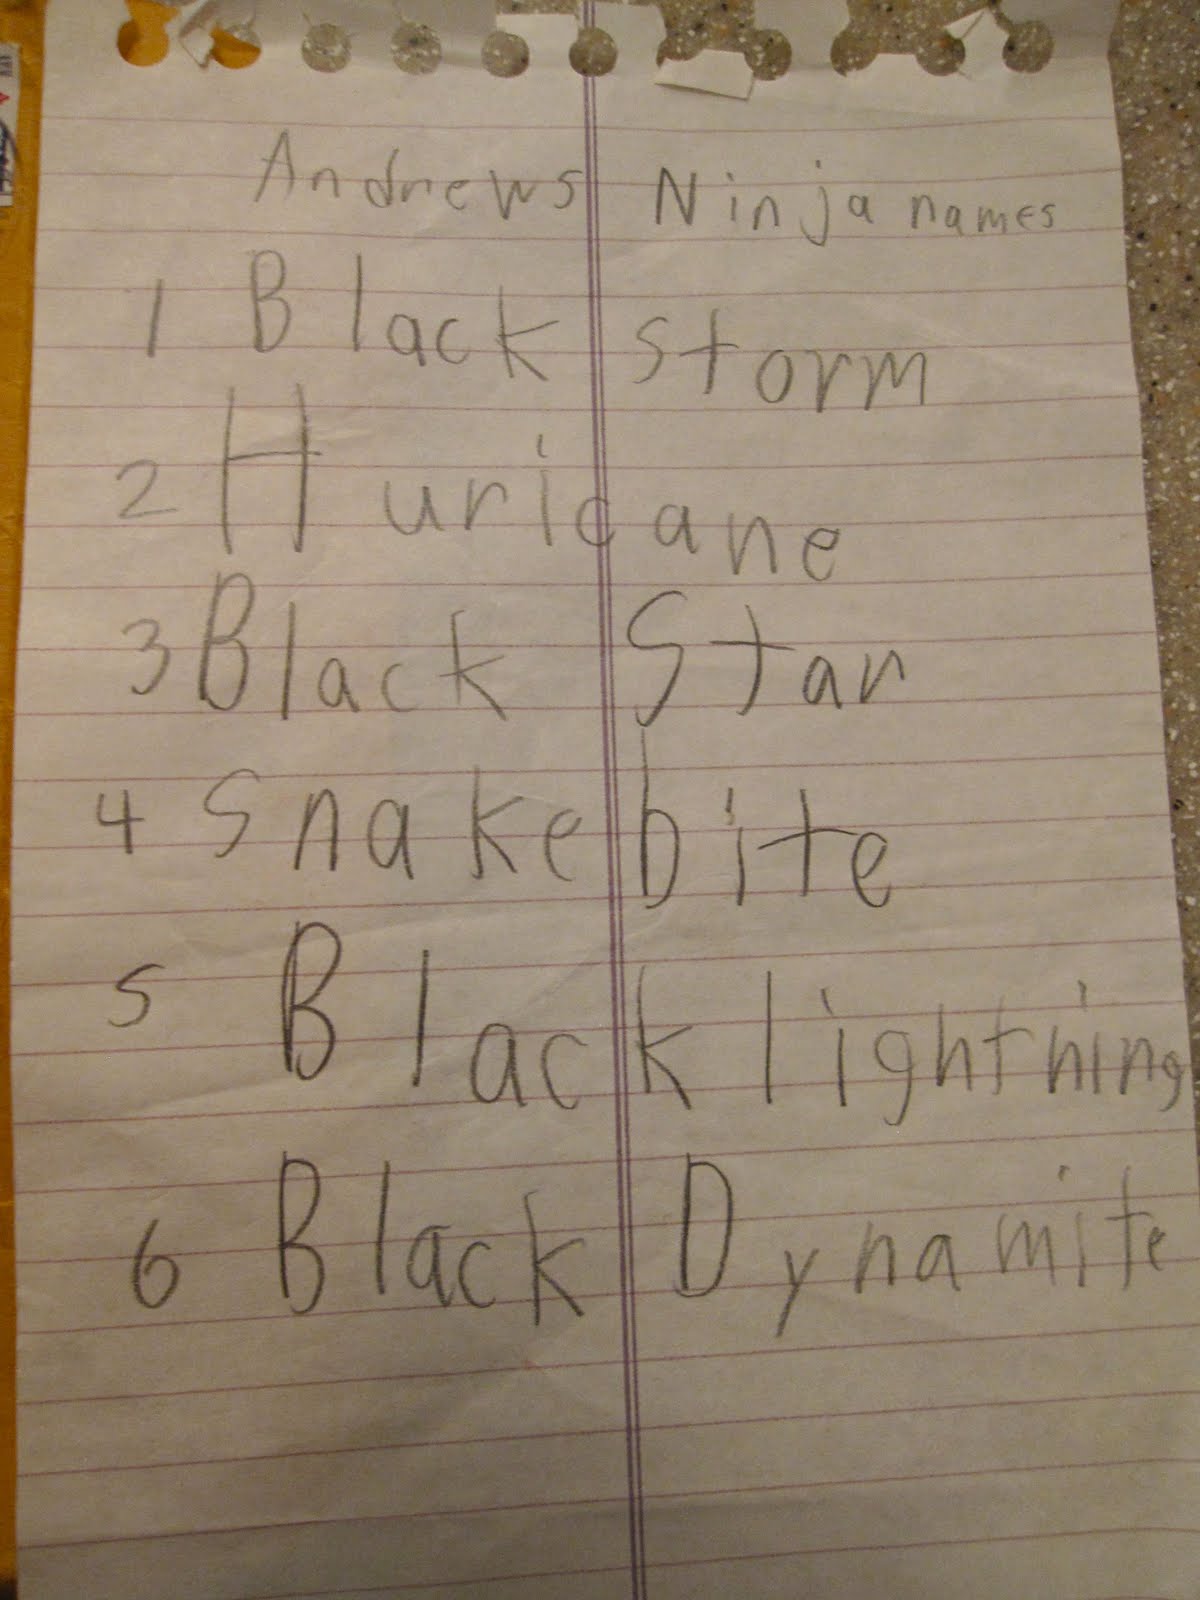 Andrews Ninja names
1 Black storm
2 Huricane
3 Black Star
4 Snakebite
5 Black lightning
6 Black Dynamite